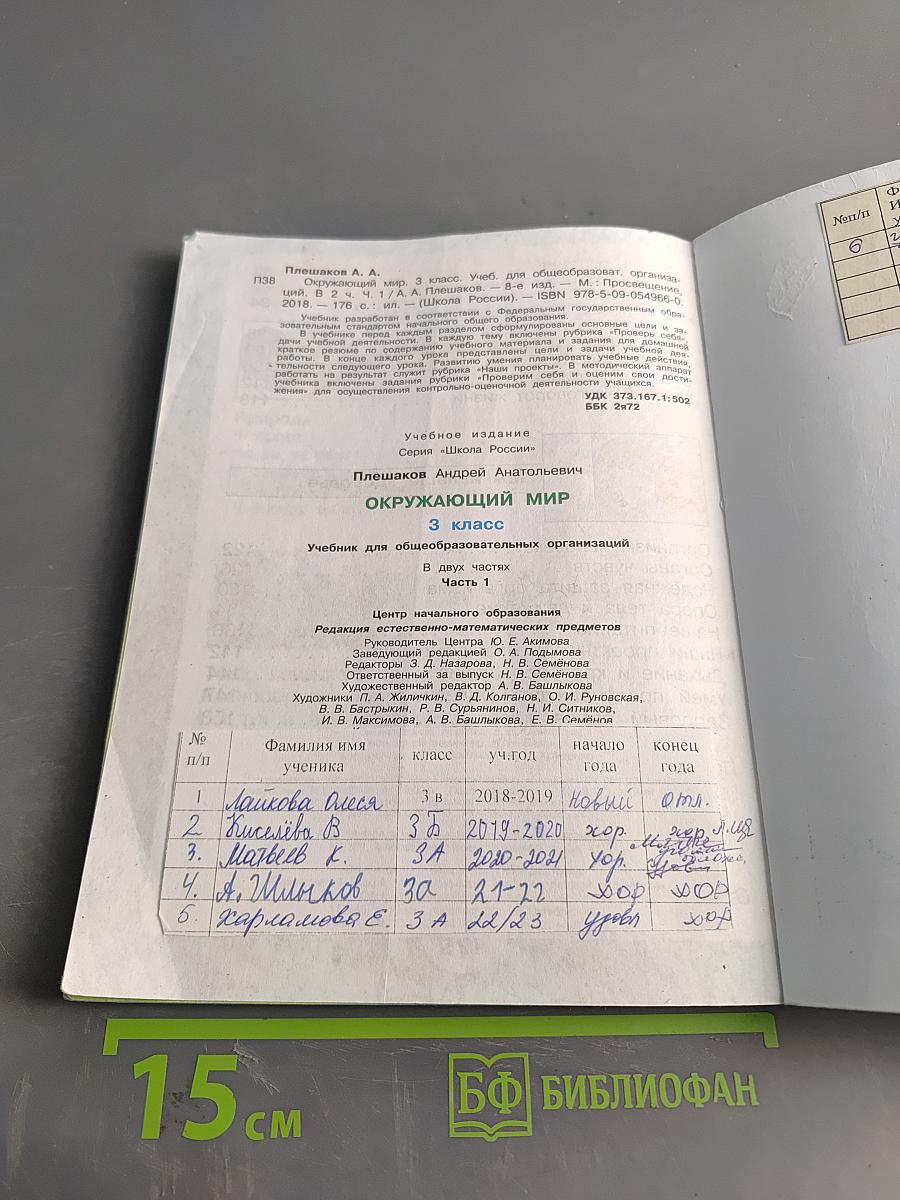 Плешаков А. А.
П38 Окружающий мир. 3 класс. Учеб. для общеобразоват. организа-
ций. В 2 ч. Ч. 1 / А. А. Плешаков. — 8-е изд. — М. : Просвещение,
2018. — 176 с. : ил. — (Школа России). — ISBN 978-5-09-054966-0.
Учебник разработан в соответствии с Федеральным государственным обра-
зовательным стандартом начального общего образования.
В учебнике перед каждым разделом сформулированы основные цели и за-
дачи учебной деятельности. В каждую тему включены рубрика «Проверь себя»,
краткое резюме по содержанию учебного материала и задания для домашней
работы. В конце каждого урока представлены цели и задачи учебной дея-
тельности следующего урока. Развитию умения планировать учебные действия,
работать на результат служит рубрика «Наши проекты». В методический аппарат
учебника включены задания рубрики «Проверим себя и оценим свои дости-
жения» для осуществления контрольно-оценочной деятельности учащихся.
УДК 373.167.1:502
ББК 2я72
Учебное издание
Серия «Школа России»
Плешаков Андрей Анатольевич
ОКРУЖАЮЩИЙ МИР
3 класс
Учебник для общеобразовательных организаций
В двух частях
Часть 1
Центр начального образования
Редакция естественно-математических предметов
Руководитель Центра Ю. Е. Акимова
Заведующий редакцией О. А. Подымова
Редакторы З. Д. Назарова, Н. В. Семёнова
Ответственный за выпуск Н. В. Семёнова
Художественный редактор А. В. Башлыкова
Художники П. А. Жиличкин, В. Д. Колганов, О. И. Руновская,
В. В. Бастрыкин, Р. В. Сурьянинов, Н. И. Ситников,
И. В. Максимова, А. В. Башлыкова, Е. В. Семёнов
№ п/п Фамилия имя ученика класс уч.год начало года конец года
1 Лайкова Олеся 3 в 2018-2019 новый отл.
2 Киселёва В 3 Б 2019-2020 хор. хор
3. Матвеев К. 3А 2020-2021 хор.
4. А. Шлыков 3а 21-22 хор хор
5. Харламова Е. 3 А 22/23 удовл хор
№п/п
6
15 см
БФ БИБЛИОФАН